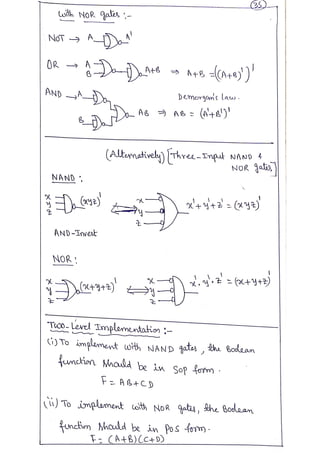 35
with NOR gates :-
NOT → A A'
OR → A B A+B ⇒ A+B = ((A+B)')'
AND → A B AB ⇒ AB = (A'+B')'
Demorganic law.
(Alternatively) [Three-Input NAND & NOR gates]
NAND :
x y z (xyz)' x y z x'+y'+z' = (xyz)'
AND-Invert
NOR :
x y z (x+y+z)' x y z x'.y'.z' = (x+y+z)'
Two-Level Implementation :-
(i) To implement with NAND gates, the Boolean
function should be in SOP form.
F = AB+CD
(ii) To implement with NOR gates, the Boolean
function should be in POS form.
F = (A+B)(C+D)